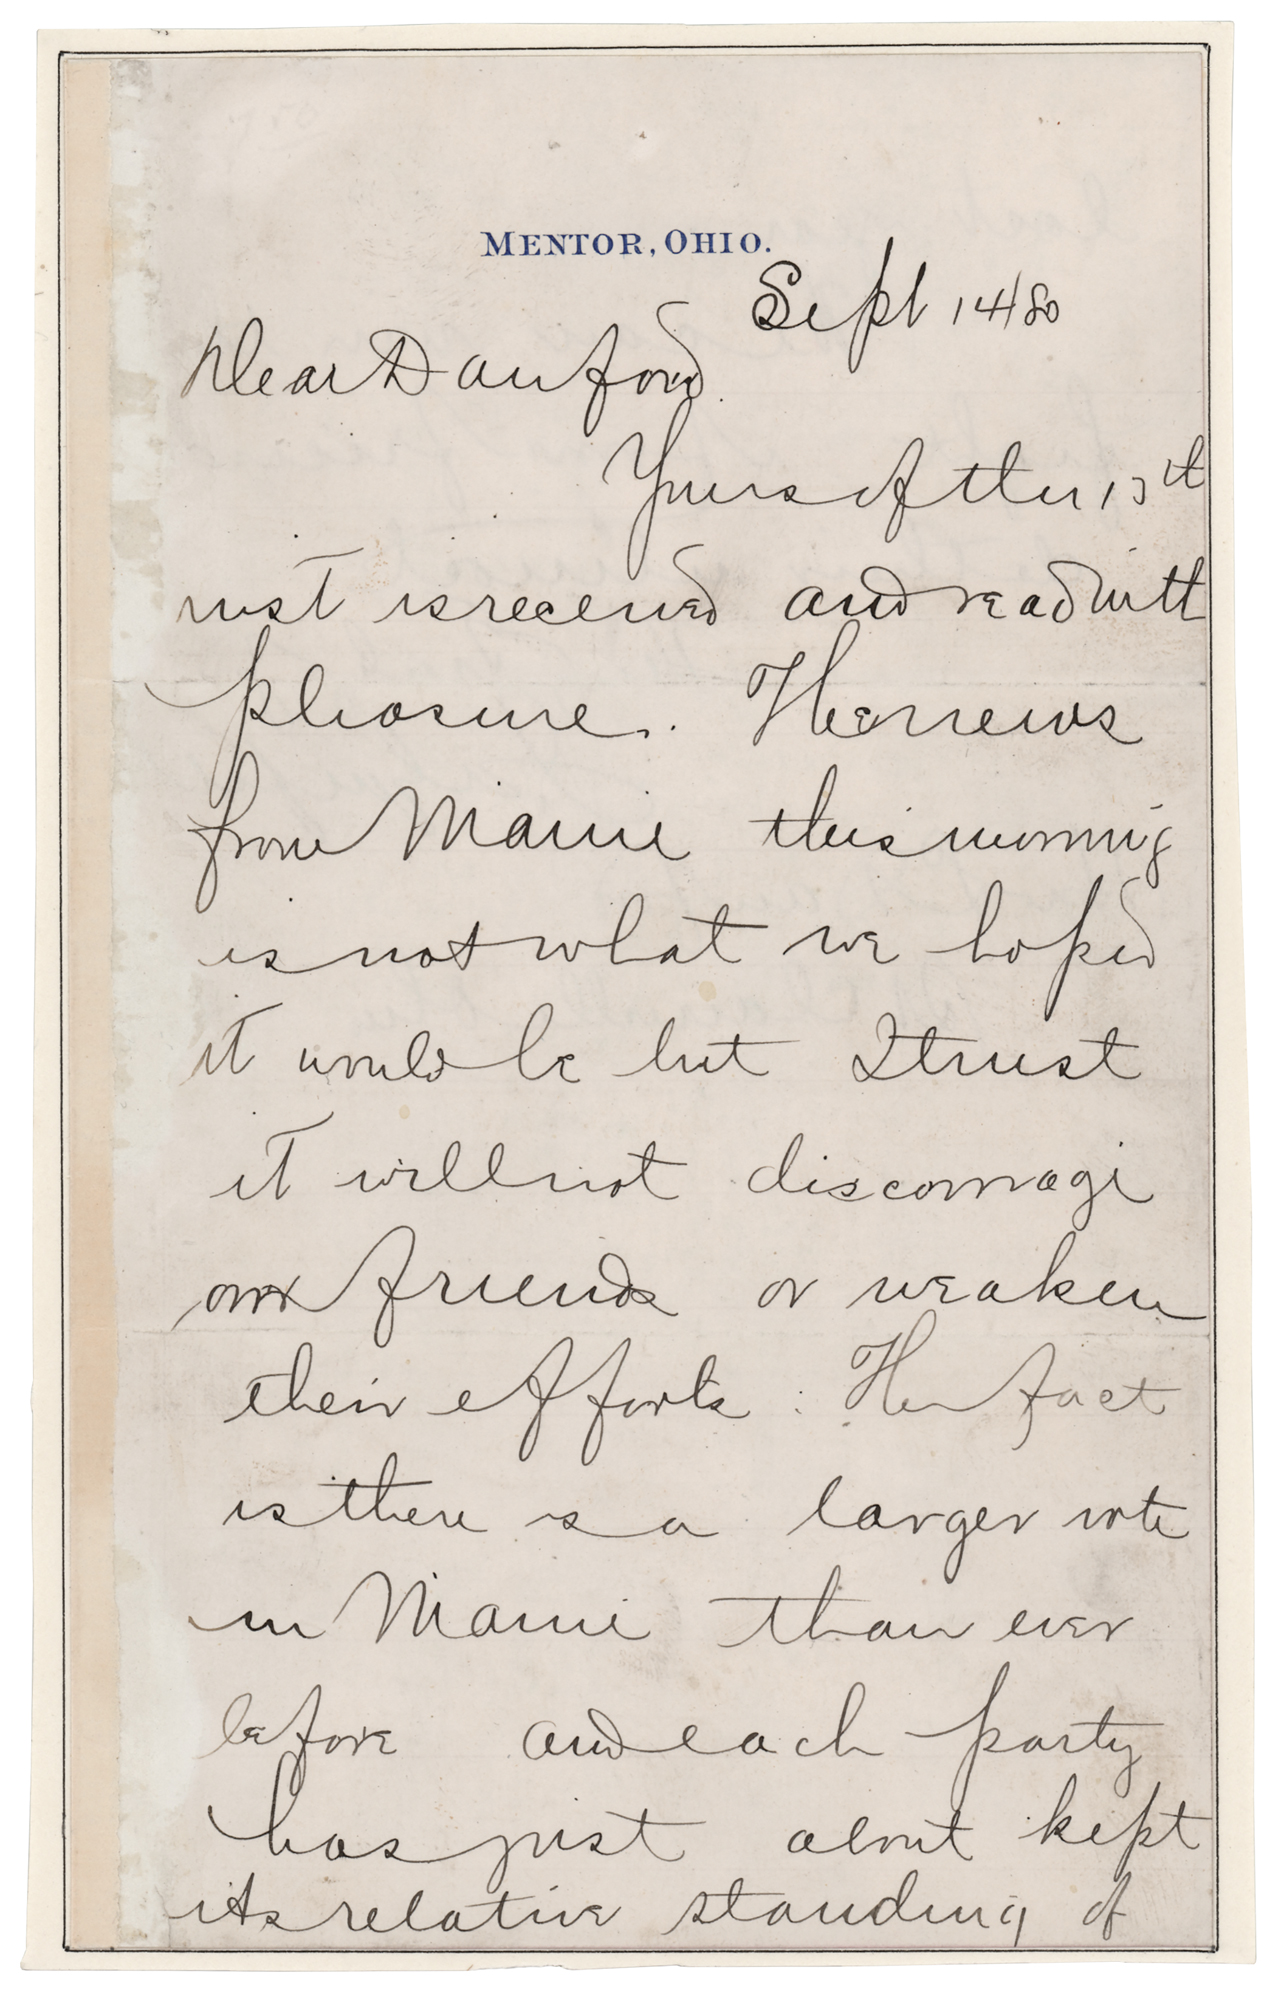 MENTOR, OHIO.
Sept 14/80
Dear Danford
Yours of the 13th
inst is received and read with
pleasure. The news
from Maine this morning
is not what we hoped
it would be but I trust
it will not discourage
our friends or weaken
their efforts. The fact
is there is a larger vote
in Maine than ever
before and each party
has just about kept
its relative standing of